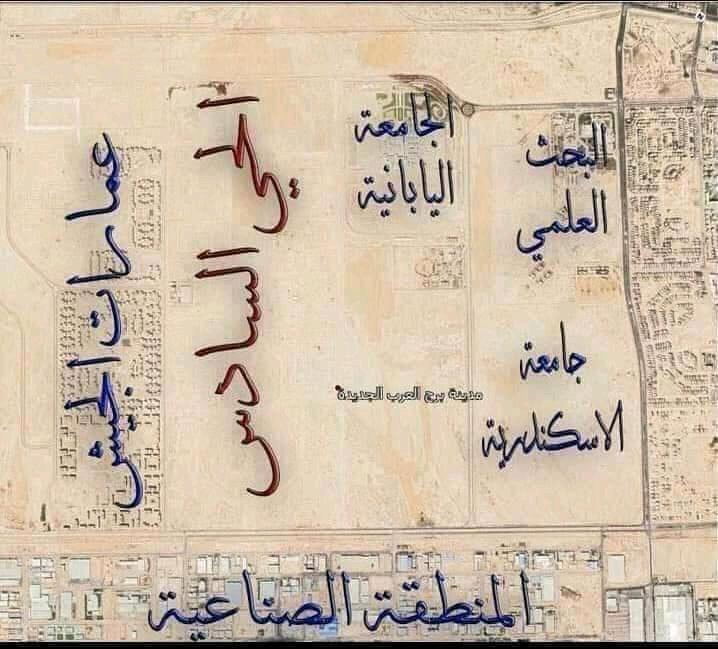 البحث
العلمي
الجامعة
اليابانية
الحي السادس
عمارات الجيش
جامعة
الاسكندرية
مدينة برج العرب الجديدة
المنطقة الصناعية